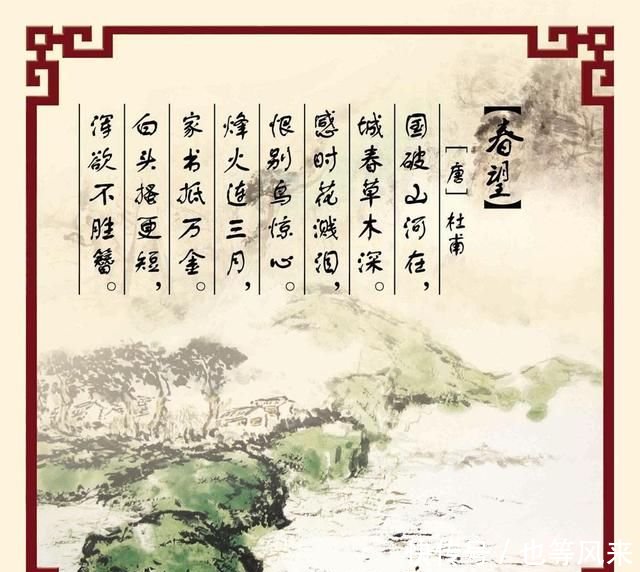 【春望】
[唐] 杜甫
国破山河在，
城春草木深。
感时花溅泪，
恨别鸟惊心。
烽火连三月，
家书抵万金。
白头搔更短，
浑欲不胜簪。
/也等风来